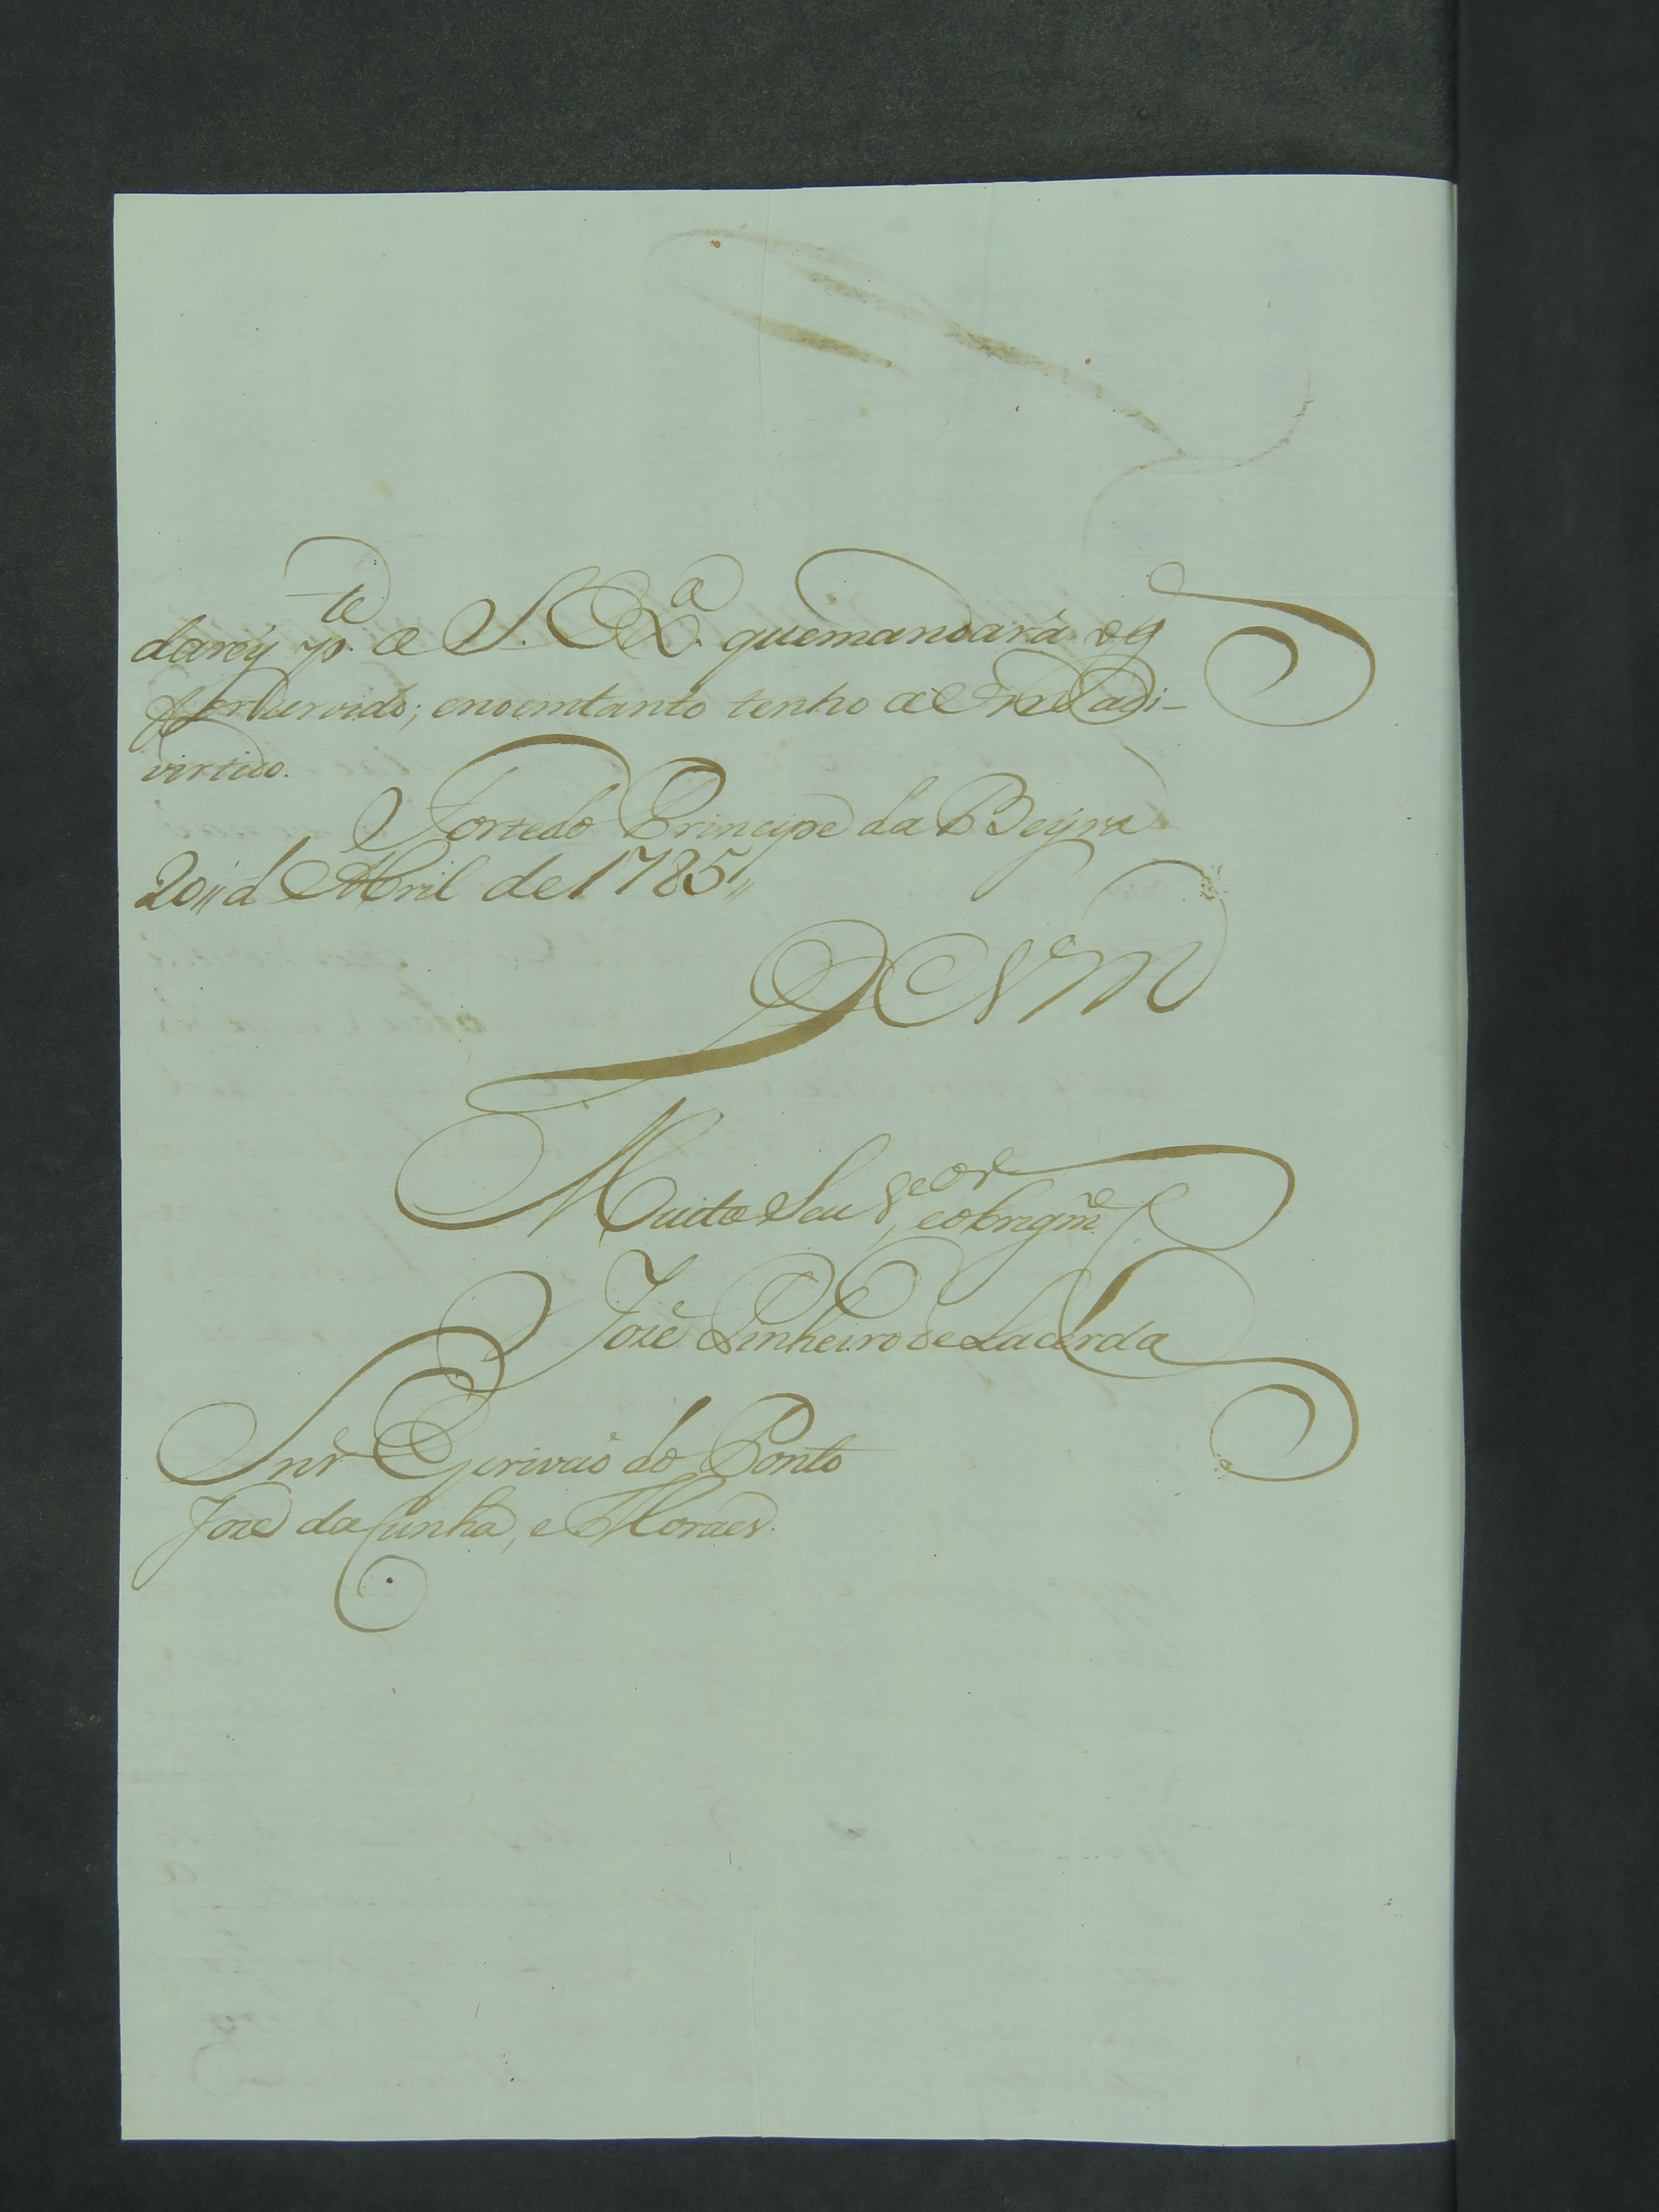 darey p.te a S. Ex.a que mandará o q
for servido; e no emtanto tenho a Vm.ce adi-
virtido.
Forte do Principe da Beyra
20,, d' Abril de 1785,,
De Vm
Muito Seu V.or, e obrigm.o
Jozé Pinheiro de Lacerda
Snr Escrivaõ do Ponto
Jozé da Cunha, e Moraes.